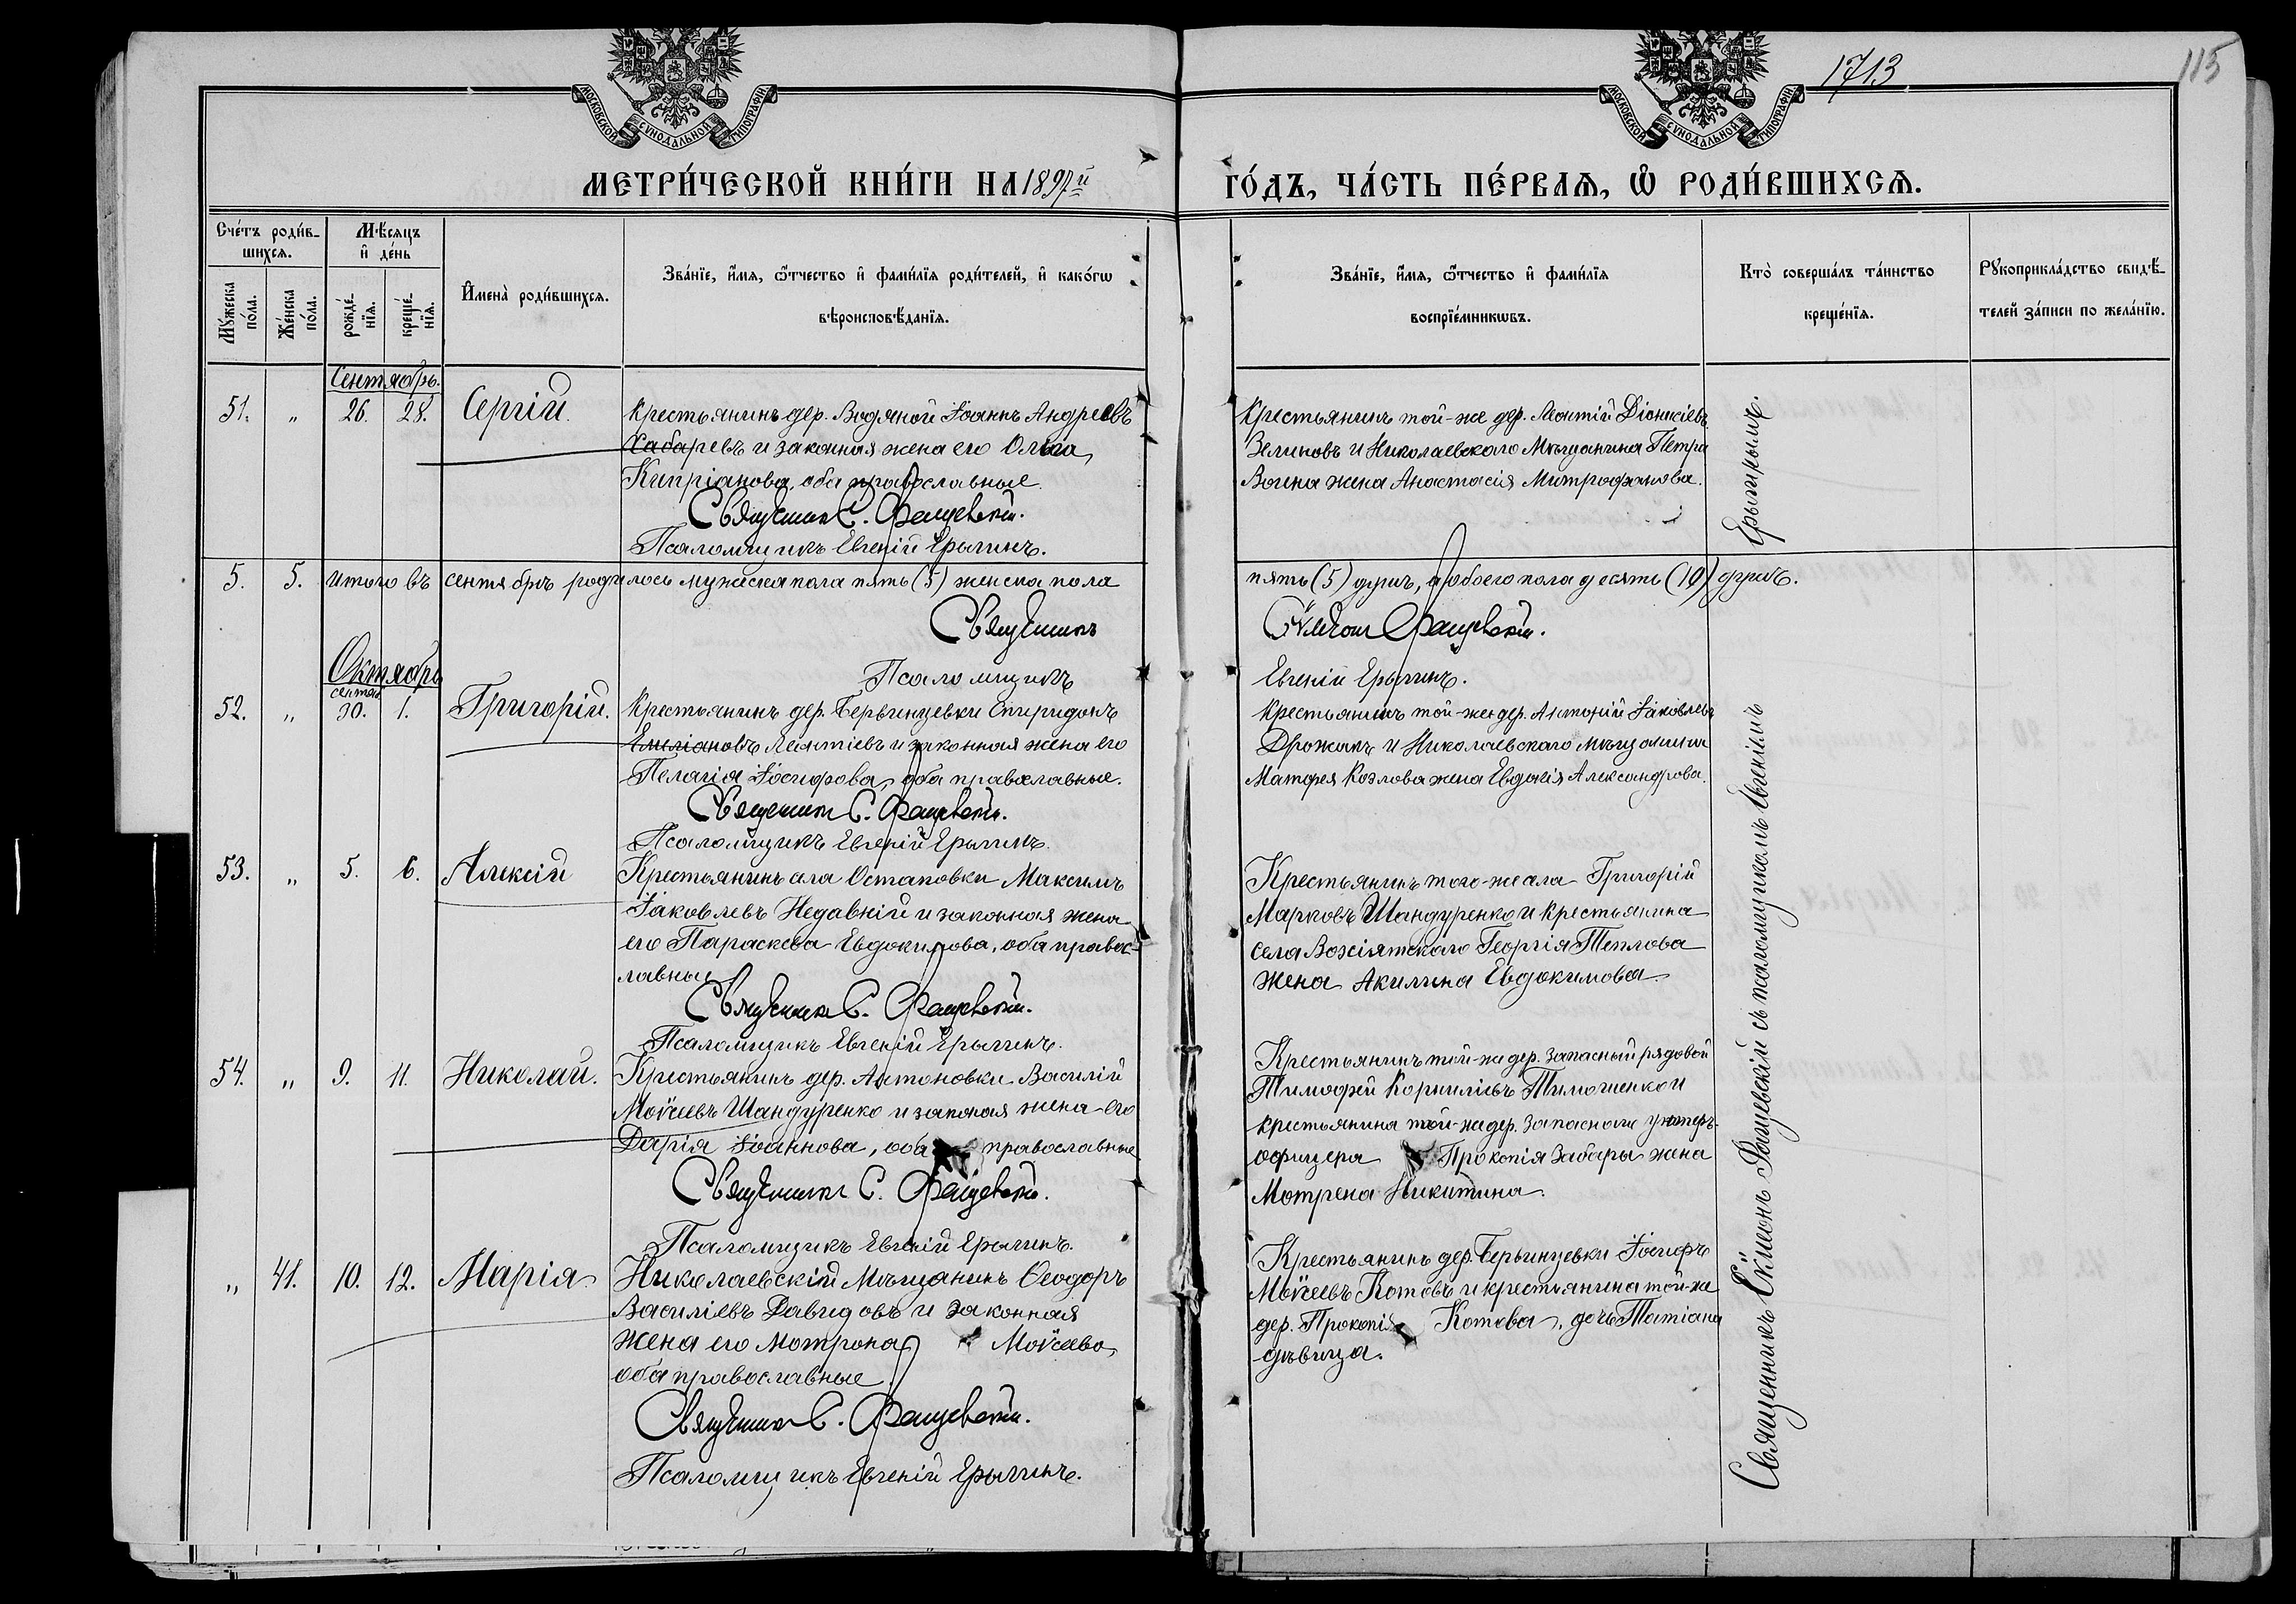 1713
115
МОСКОВСКОЙ СѴНОДАЛЬНОЙ ТИПОГРАФІИ
МОСКОВСКОЙ СѴНОДАЛЬНОЙ ТИПОГРАФІИ
МЕТРИ́ЧЕСКОЙ КНИ́ГИ НА 1897й
ГО́ДЪ, ЧА́СТЬ ПЕ́РВАѦ, Ѽ РОДИ́ВШИХСѦ.
Сче́тъ роди́в-
шихсѧ.
Мѣ́сяцъ
и҆ де́нь
Му́жеска
по́ла.
Же́нска
по́ла.
рожде́-
нїѧ.
креще́-
нїѧ.
И҆мена̀ роди́вшихсѧ.
Зва́нїе, и҆́мѧ, ѻ҆́тчество и҆ фами́лїѧ роди́телей, и҆ како́гѡ
вѣроисповѣ́данїѧ.
Зва́нїе, и҆́мѧ, ѻ҆́тчество и҆ фами́лїѧ
воспрїе́мникѡвъ.
Кто̀ соверша́лъ та́инство
креще́нїѧ.
Рꙋкоприкла́дство свидѣ́-
телей за́писи по жела́нїю.
Сентябрь.
51. „ 26. 28. Сергій.
Крестьянинъ дер. Водяной Іоаннъ Андреевъ
Хабаревъ и законная жена его Ольга
Кипріанова, оба православные.
Священникъ С. Фащевскій.
Псаломщикъ Евгеній Ерыгинъ.
Крестьянинъ той-же дер. Леонтій Діонисіевъ
Зелиновъ и Николаевскаго Мѣщанина Петра
жена Анастасія Митрофанова.
5. 5. Итого въ сентябрѣ родилось мужеска пола пять (5) женска пола
пять (5) душъ, а обоего пола десять (10) душъ.
Священникъ
Сѵмеонъ Фащевскій.
Псаломщикъ
Евгеній Ерыгинъ.
Октябрь
сентяб.
52. „ 30. 1. Григорій.
Крестьянинъ дер. Бервинцевки Спиридонъ
Емиліановъ Леонтіевъ и законная жена его
Пелагія Іосифова, оба православные.
Священникъ С. Фащевскій.
Псаломщикъ Евгеній Ерыгинъ.
Крестьянинъ той-же дер. Антоній Іаковлевъ
Дрожакъ и Николаевскаго мѣщанина
Матфея Козлова жена Евдокія Александрова.
53. „ 5. 6. Алексій
Крестьянинъ села Остаповки Максимъ
Іаковлевъ Недавній и законная жена
его Параскева Евдокимова, оба правос-
лавные
Священникъ С. Фащевскій.
Псаломщикъ Евгеній Ерыгинъ.
Крестьянинъ того-же села Григорій
Марковъ Шандуренко и крестьянина
села Возсіятскаго Георгія Теплова
жена Акилина Евдокимова.
54. „ 9. 11. Николай.
Крестьянинъ дер. Антоновки Василій
Моѵсеевъ Шандуренко и законая жена его
Дарія Іоаннова, оба православные
Священникъ С. Фащевскій.
Псаломщикъ Евгеній Ерыгинъ.
Крестьянинъ той-же дер. запасный рядовой
Тимофей Корниліевъ Тимошенко и
крестьянина той-же дер. запаснаго унтеръ-
офицера Прокопія Забары жена
Мотрена Никитина.
„ 41. 10. 12. Марія
Николаевскій Мѣщанинъ Ѳеодоръ
Василіевъ Давидовъ и законная
жена его Мотрона Моѵсеева,
оба православные.
Священникъ С. Фащевскій.
Псаломщикъ Евгеній Ерыгинъ.
Крестьянинъ дер. Бервинцевки Іосифъ
Моѵсеевъ Котовъ и крестьянина той-же
дер. Прокопія Котова, дочь Татіана
дѣвица.
Священникъ Сѵмеонъ Фащевскій съ псаломщикомъ Евгеніемъ
Ерыгинымъ.